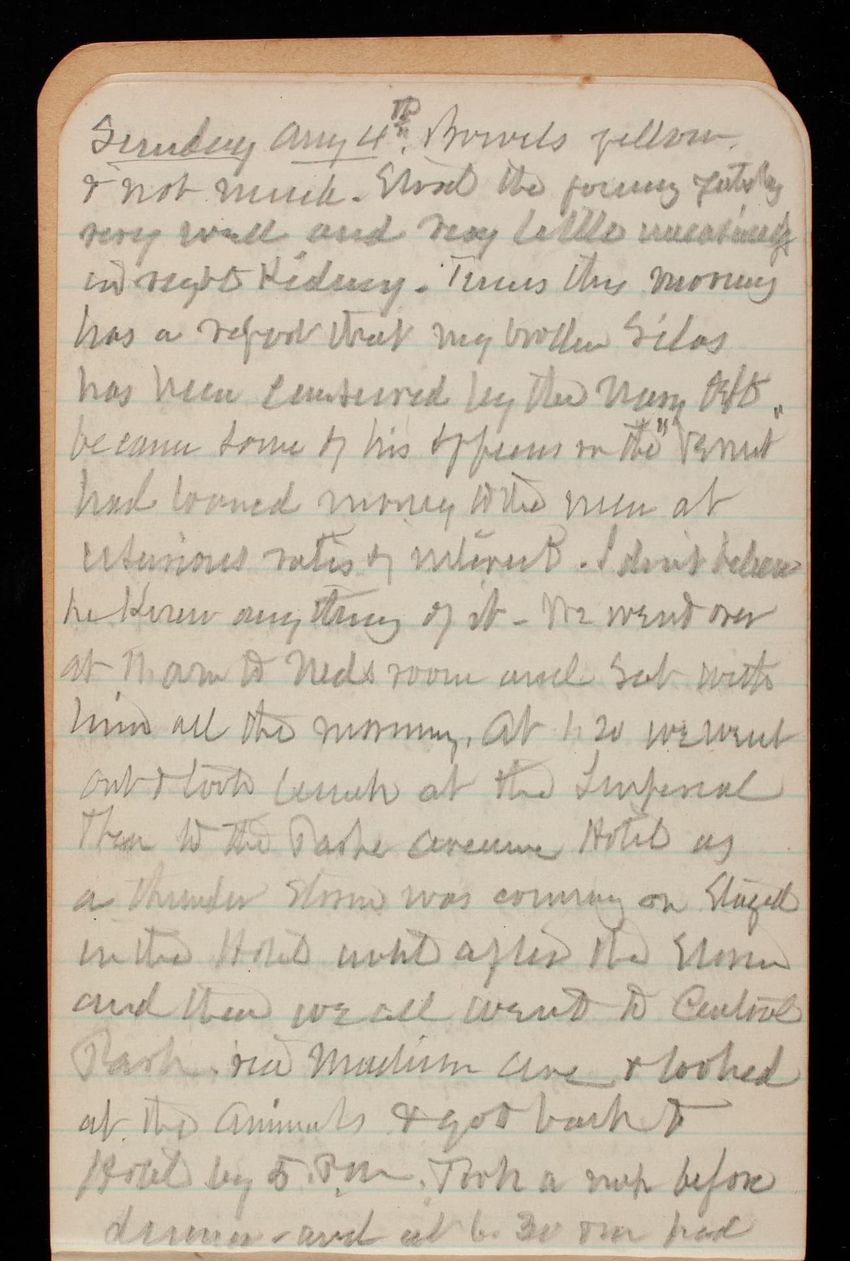 Sunday Aug 4th. Bowels yellow
& not much. Stood the journey yesterday
very well and very little uneasiness
in right Kidney. Times this morning
has a report that my brother Silas
has been censured by the Navy Dept.
because some of his officers on the "Vermont"
had loaned money to the men at
usurious rates of interest. I don't believe
he knew anything of it - We went over
at 11. am to Neds room and sat with
him all the morning. At 1.20 we went
out & took lunch at the Imperial
Then to the Parke avenue Hotel as
a thunder storm was coming on Stayed
in the Hotel until after the storm
and then we all went to Central
Park. via Madison ave & looked
at the animals & got back to
Hotel by 5. P.m. Took a nap before
dinner - and at 6.30 we had